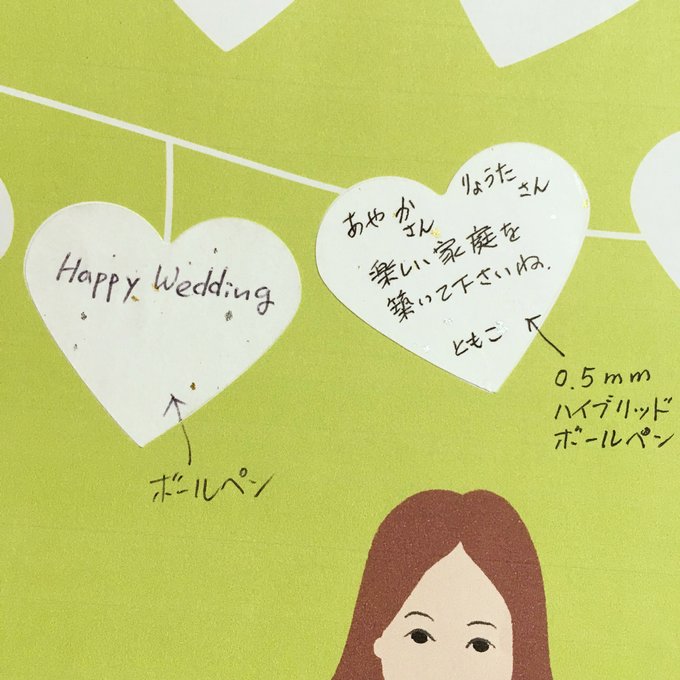 Happy Wedding
ボールペン
あやかさん
りょうたさん
楽しい家庭を
築いて下さいね.
ともこ
0.5mm
ハイブリッド
ボールペン